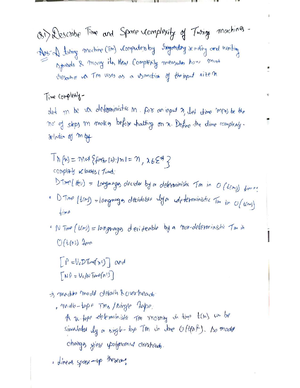 Q1) Describe Time and Space complexity of Turing machines.
Ans-) A turing machine (TM) computes by repeatedly reading and writing
symbols & moving the Head Complexity measures how much
resource as TM uses as a function of the input size n
Time complexity-
let m be a deterministic m. for an input x, let time m(x) be the
no of steps m makes before halting on x. Define the time complexity
function of m by
complexity classes (Time)
DTime (t(n)) = languages decided by a deterministic Tm in O(t(n)) time.
• DTime (t(n)) = languages decidable by a deterministic Tm in O(t(n))
time
• N Time (t(n)) = languages decideable by a non-deterministic Tm in
O(t(n)) Time
and
model details & overheads
multi-tape Tms / single Tape
A k-tape deterministic Tm running in time t(n) can be
simulated by a single-tape Tm in time
changes give polynomial overhead
• Linear speed-up theorem: